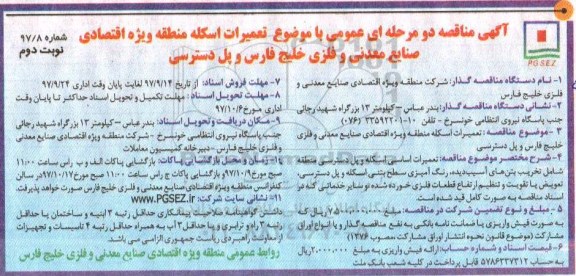 آگهی مناقصه دو مرحله ای عمومی با موضوع تعمیرات اسکله منطقه ویژه اقتصادی
صنایع معدنی و فلزی خلیج فارس و پل دسترسی
شماره ۹۷/۸
نوبت دوم
PGSEZ
۱- نام دستگاه مناقصه گذار: شرکت منطقه ویژه اقتصادی صنایع معدنی و
فلزی خلیج فارس
۲- نشانی دستگاه مناقصه گذار: بندر عباس – کیلومتر ۱۳ بزرگراه شهید رجائی
جنب پاسگاه نیروی انتظامی خونسرخ - تلفن ۱۰-۳۳۵۹۲۲۰۱ (۰۷۶)
۳- موضوع مناقصه: تعمیرات اسکله منطقه ویژه اقتصادی صنایع معدنی و فلزی
خلیج فارس و پل دسترسی
۴- شرح مختصر موضوع مناقصه: تعمیرات اساسی اسکله و پل دسترسی منطقه
شامل تخریب بتن‌های آسیب‌دیده، رنگ آمیزی سطح بتنی اسکله و پل دسترسی،
تعویض یا تقویت و تنظیم ارتفاع قطعات فلزی خورده شده و سایر خدماتی که در
اسناد مناقصه به صورت کامل قید شده است.
۵- مبلغ و نوع تضمین شرکت در مناقصه: مبلغ ریال که
به صورت فیش واریزی یا ضمانت نامه بانکی به نفع مناقصه گذار و یا انواع اوراق
مشارکت (موضوع قانون نحوه انتشار اوراق مشارکت مصوب ۱۳۷۶)
۶- قیمت اسناد و شماره حساب: ارائه فیش واریزی به مبلغ ۲,۰۰۰,۰۰۰ ریال
به حساب ۵۷۸۶۳۳۷۳۱۲ در کلیه شعب بانک ملت
۷- مهلت فروش اسناد: از تاریخ ۹۷/۹/۱۴ لغایت پایان وقت اداری ۹۷/۹/۲۴
۸- مهلت تحویل اسناد: مهلت تکمیل و تحویل اسناد حداکثر تا پایان وقت
اداری مورخ ۹۷/۱۰/۶
۹- مکان دریافت و تحویل اسناد: بندرعباس – کیلومتر ۱۳ بزرگراه شهید رجائی
جنب پاسگاه نیروی انتظامی خونسرخ - شرکت منطقه ویژه اقتصادی صنایع معدنی
و فلزی خلیج فارس - دبیرخانه کمیسیون معاملات
۱۰- زمان و محل بازگشایی پاکات: بازگشایی پاکات الف و ب راس ساعت ۱۱:۰۰
صبح مورخ ۹۷/۱۰/۹ و بازگشایی پاکات ج راس ساعت ۱۱:۰۰ صبح مورخ ۹۷/۱۰/۱۷ در سالن
کنفرانس منطقه ویژه اقتصادی صنایع معدنی و فلزی خلیج فارس صورت خواهد پذیرفت.
۱۱- نشانی سایت شرکت: www.PGSEZ.ir
داشتن گواهینامه صلاحیت پیمانکاری حداقل رتبه ۳ ابنیه و ساختمان یا حداقل
رتبه ۳ راه و ترابری و یا حداقل ۳ آب به همراه حداقل رتبه ۴ تاسیسات و تجهیزات
از معاونت راهبردی ریاست جمهوری الزامی می باشد.
روابط عمومی منطقه ویژه اقتصادی صنایع معدنی و فلزی خلیج فارس